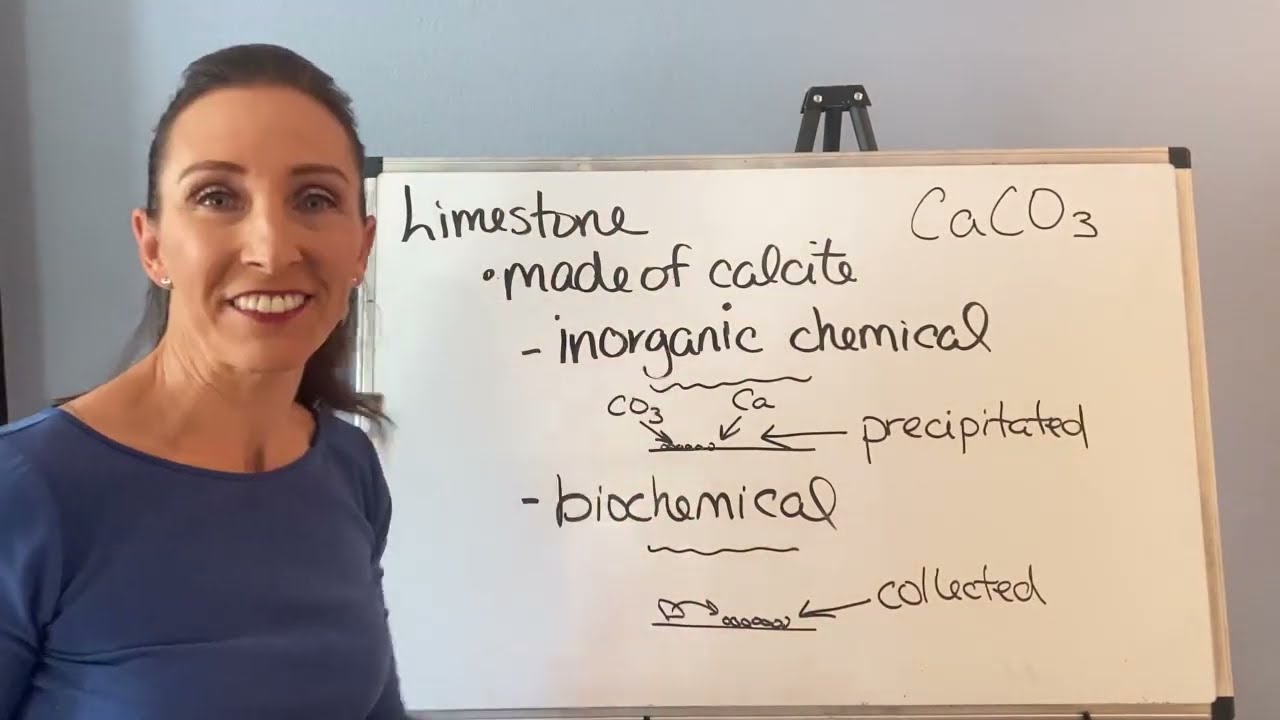 Limestone
CaCO3
•made of calcite
- inorganic chemical
CO3 Ca
precipitated
- biochemical
collected